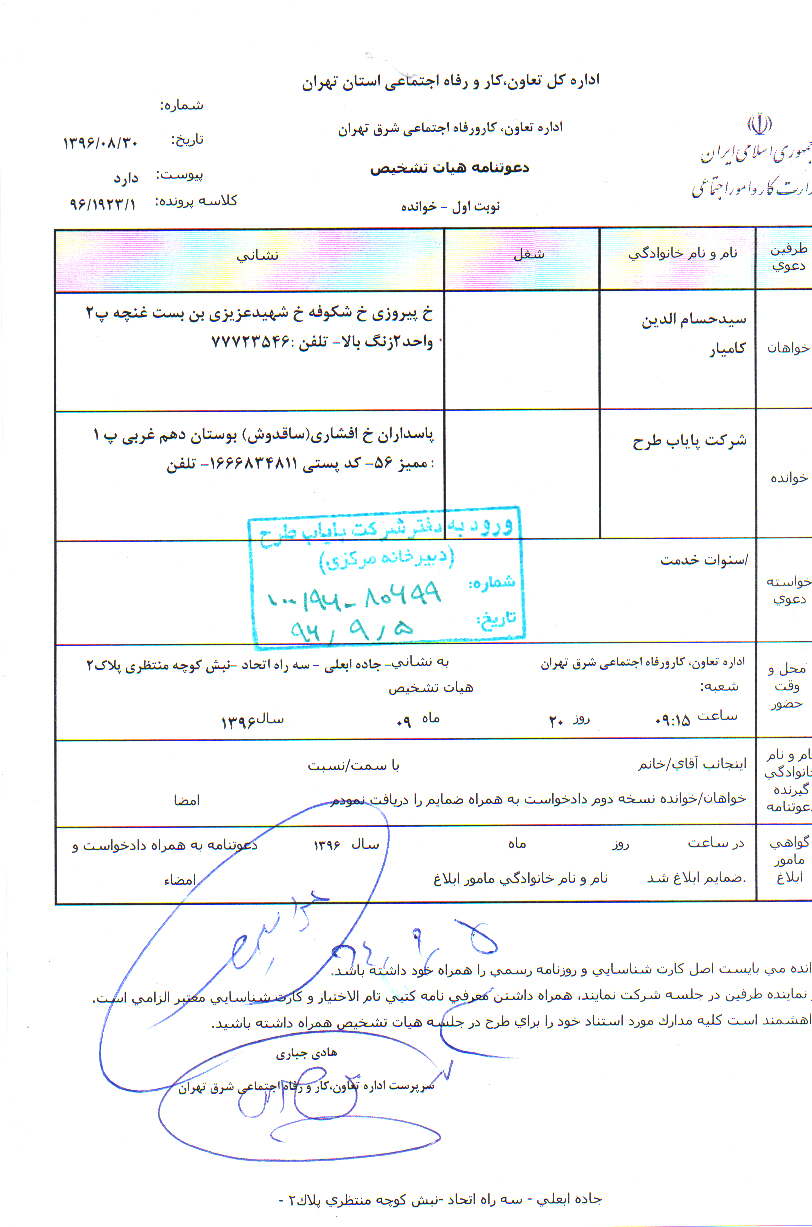 اداره کل تعاون،کار و رفاه اجتماعی استان تهران
اداره تعاون، کارورفاه اجتماعی شرق تهران
دعوتنامه هیات تشخیص
نوبت اول - خوانده
شماره:
تاریخ: ۱۳۹۶/۰۸/۳۰
پیوست: دارد
کلاسه پرونده: ۹۶/۱۹۲۳/۱
جمهوری اسلامی ایران
وزارت کار و امور اجتماعی
طرفین دعوي
نام و نام خانوادگي
شغل
نشاني
خواهان
سیدحسام الدین
کامیار
خ پیروزی خ شکوفه خ شهیدعزیزی بن بست غنچه پ۲
واحد۲زنگ بالا- تلفن :۷۷۷۲۳۵۴۶
خوانده
شرکت پایاب طرح
پاسداران خ افشاری(ساقدوش) بوستان دهم غربی پ ۱
ممیز ۵۶- کد پستی ۱۶۶۶۸۳۴۸۱۱- تلفن :
ورود به دفتر شرکت پایاب طرح
(دبیرخانه مرکزی)
شماره: ۱۰۰/۹۶-۸۰۶۹۹
تاریخ: ۹۶/۹/۵
خواسته دعوي
سنوات خدمت/
محل و وقت حضور
اداره تعاون، کارورفاه اجتماعی شرق تهران به نشاني- جاده ابعلی - سه راه اتحاد -نبش کوچه منتظری پلاک۲
شعبه: هیات تشخیص
ساعت ۰۹:۱۵ روز ۲۰ ماه ۰۹ سال ۱۳۹۶
نام و نام خانوادگي گیرنده دعوتنامه
اینجانب آقاي/خانم با سمت/نسبت
خواهان/خوانده نسخه دوم دادخواست به همراه ضمایم را دریافت نمودم امضا
گواهي مامور ابلاغ
در ساعت روز ماه سال ۱۳۹۶ دعوتنامه به همراه دادخواست و
ضمایم ابلاغ شد. نام و نام خانوادگي مامور ابلاغ امضاء
۹۶/۹/۵
مي بایست اصل کارت شناسایي و روزنامه رسمي را همراه خود داشته باشد.
نماینده طرفین در جلسه شرکت نمایند، همراه داشتن معرفي نامه کتبي تام الاختیار و کارت شناسایي معتبر الزامي است.
است کلیه مدارك مورد استناد خود را براي طرح در جلسه هیات تشخیص همراه داشته باشید.
هادی جباری
سرپرست اداره تعاون،کار و رفاه اجتماعی شرق تهران
جاده ابعلي - سه راه اتحاد -نبش کوچه منتظري پلاك۲ -